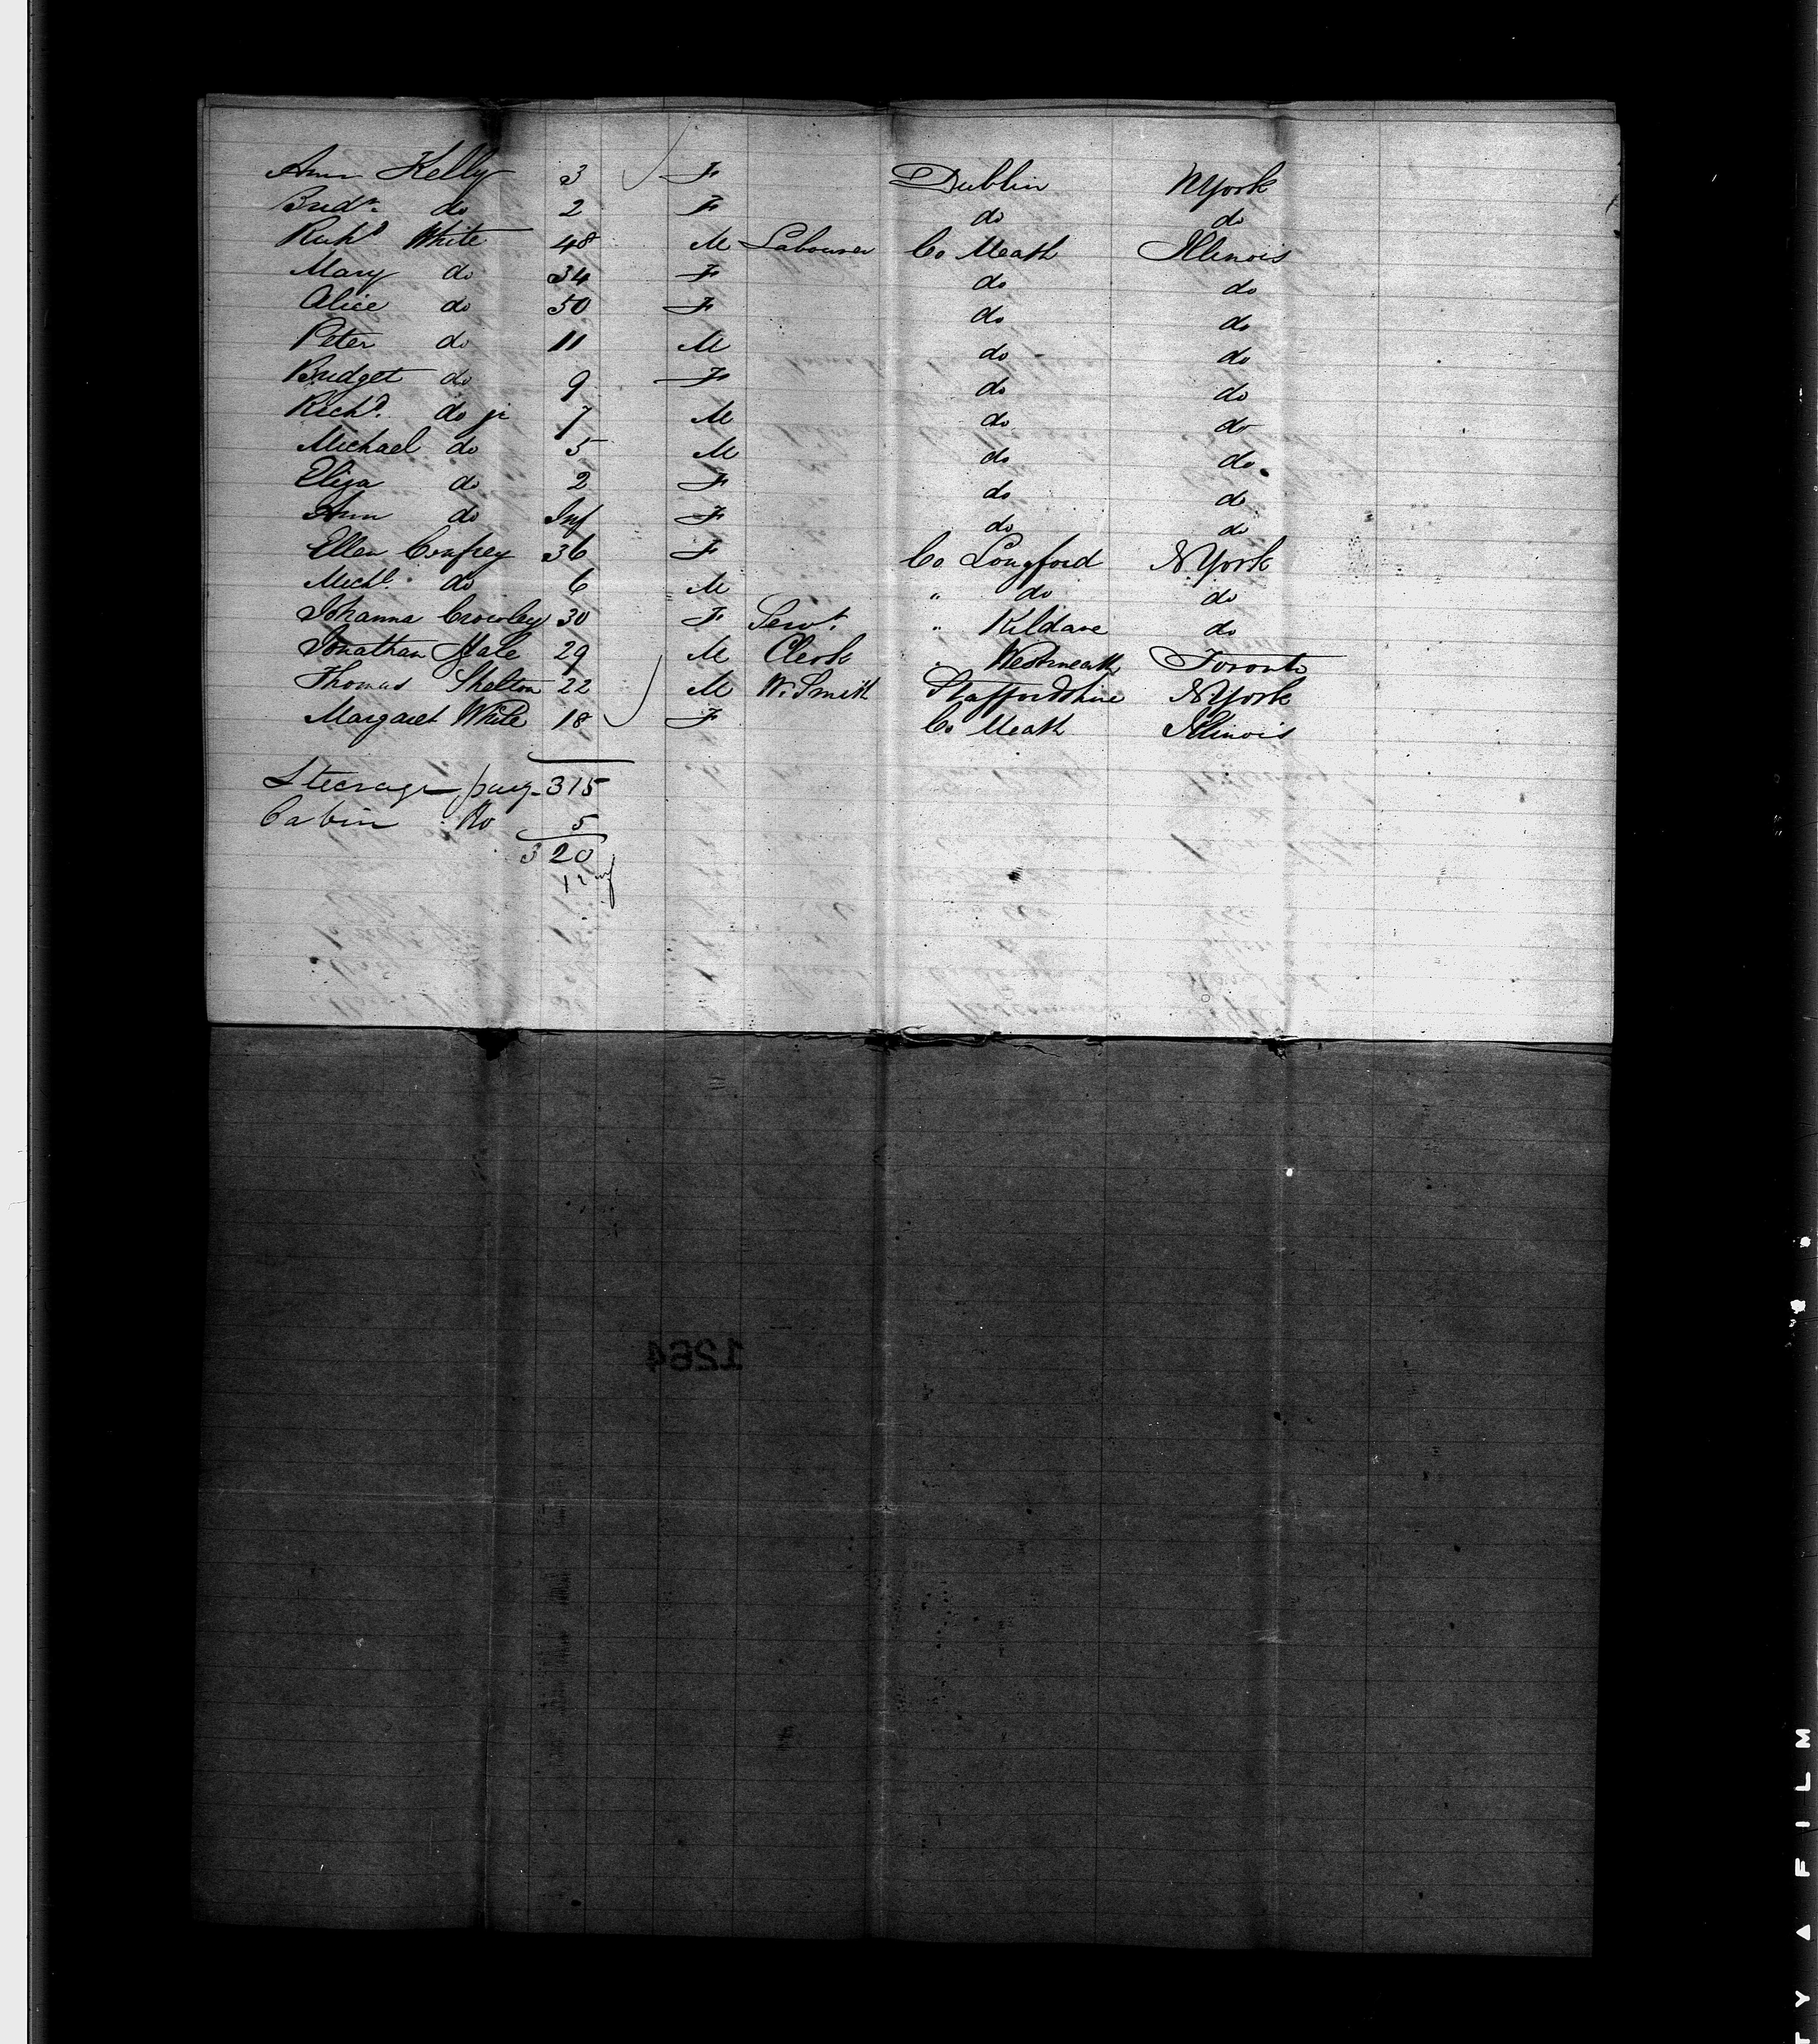 Ann Kelly 3 F Dublin N York
Bridt. do 2 F do do
Richd White 48 M Labourer Co Meath Illinois
Mary do 34 F do do
Alice do 50 F do do
Peter do 11 M do do
Bridget do 9 F do do
Richd. do jr 7 M do do
Michael do 5 M do do
Eliza do 2 F do do
Ann do Inf F do do
Ellen Confrey 36 F Co Longford N York
Michl. do 6 M " do do
Johanna Crowley 30 F Servt. " Kildare do
Jonathan 29 M Clerk " Westmeath Toronto
Thomas Shelton 22 M W. Smith Staffordshire N York
Margaret White 18 F Co Meath Illinois
Steerage 315
Cabin Do 5
320
1264
FILM